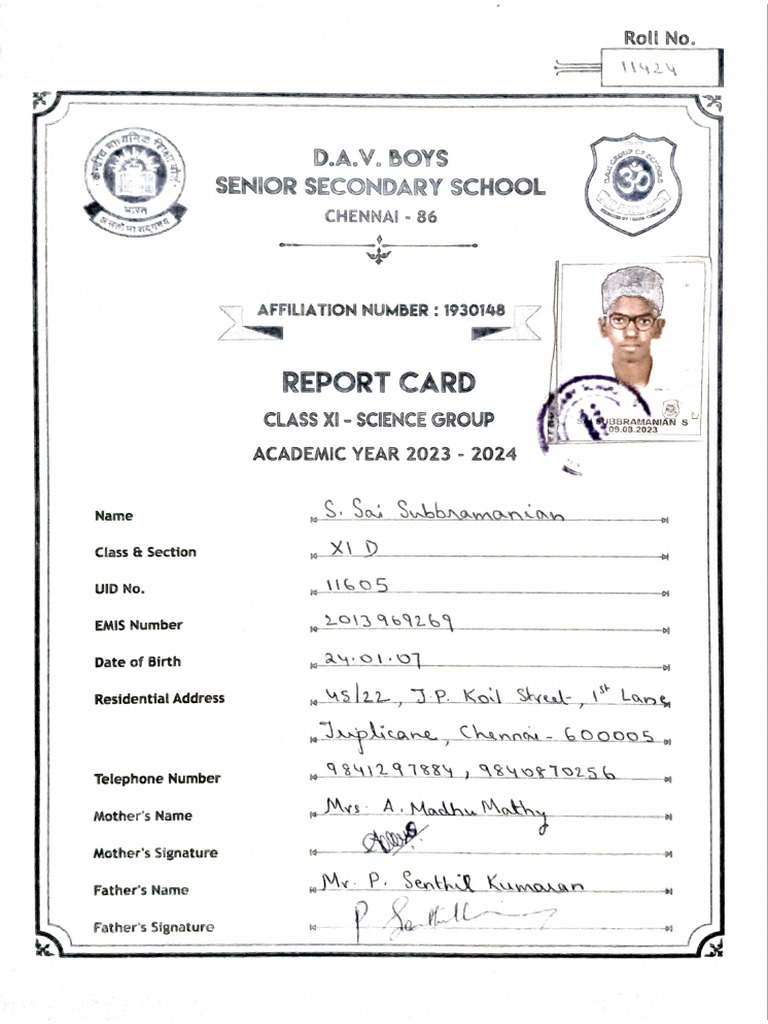 Roll No.
11424
केन्द्रीय माध्यमिक शिक्षा बोर्ड
भारत
असतो मा सद्गमय
D.A.V. BOYS
SENIOR SECONDARY SCHOOL
CHENNAI - 86
D.A.V. GROUP OF SCHOOLS
ॐ
AFFILIATION NUMBER : 1930148
REPORT CARD
CLASS XI - SCIENCE GROUP
ACADEMIC YEAR 2023 - 2024
SUBBRAMANIAN S
09.08.2023
Name S. Sai Subbramanian
Class & Section XI D
UID No. 11605
EMIS Number 2013969269
Date of Birth 24.01.07
Residential Address 45/22, J.P. Koil Street, 1st Lane,
Triplicane, Chennai - 600005
Telephone Number 9841297884, 9840870256
Mother's Name Mrs. A. Madhu Mathy
Mother's Signature
Father's Name Mr. P. Senthil Kumaran
Father's Signature P Senthil